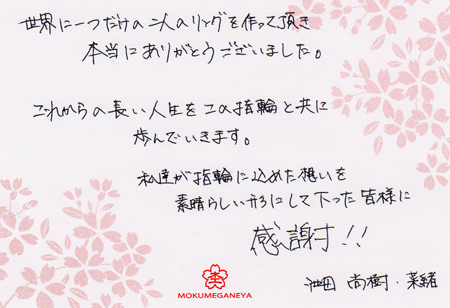 世界に一つだけの二人のリングを作って頂き
本当にありがとうございました。
これからの長い人生をこの指輪と共に
歩んでいきます。
私達が指輪に込めた想いを
素晴らしいカタチにして下さった皆様に
感謝!!
池田 尚樹・菜緒
MOKUMEGANEYA